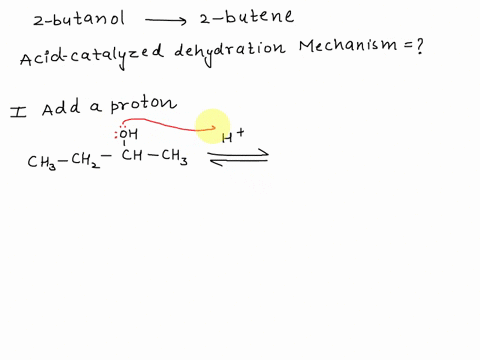 2-butanol ⟶ 2-butene
Acid-catalyzed dehydration Mechanism = ?
I Add a proton
:ÖH H+
CH3-CH2-CH-CH3 ⇌